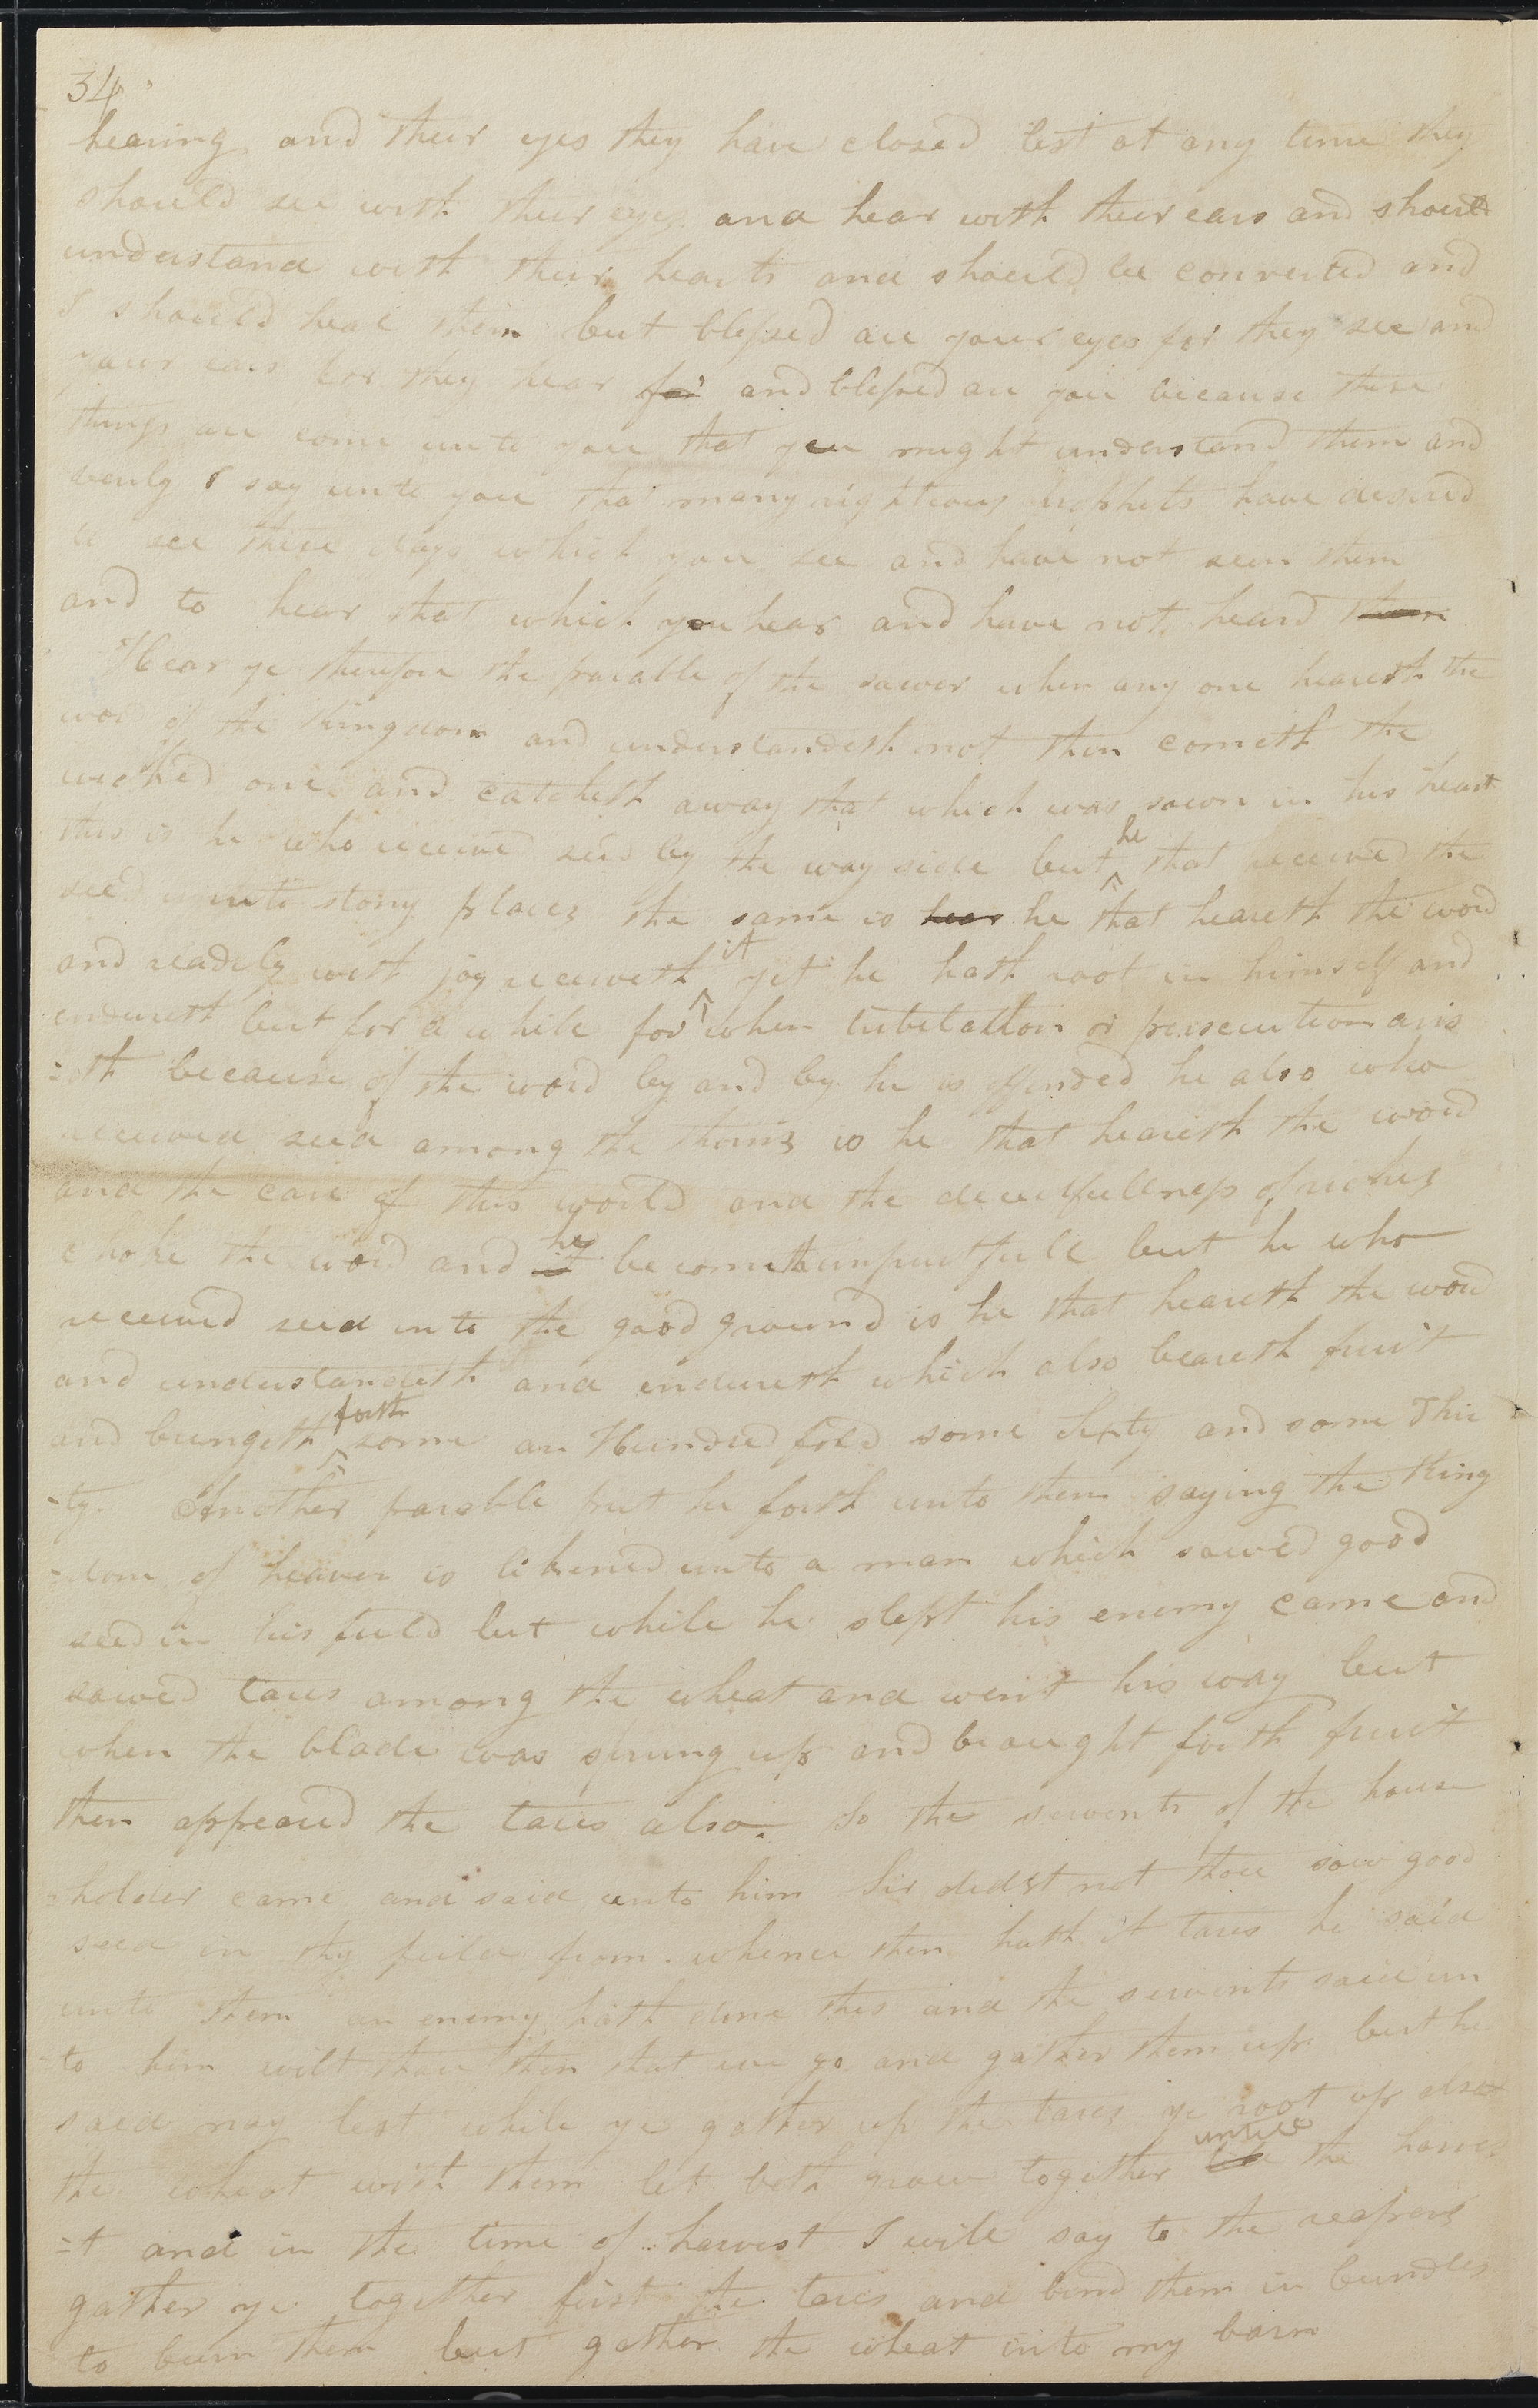 34
hearing and their eyes they have closed lest at any time they
should see with their eyes and hear with their ears and should
understand with their hearts and should be converted and
I should heal them but blessed are your eyes for they see and
your ears for they hear for and blessed are you because these
things are come unto you that you might understand them and
verily I say unto you that many righteous prophets have desired
to see these days which you see and have not seen them
and to hear that which you hear and have not heard them
Hear ye therefore the parable of the sower when any one heareth the
word of the Kingdom and understandeth not then cometh the
wicked one and catcheth away that which was sown in his heart
this is he who received seed by the way side but he that received the
seed into stony places the same is hear he that heareth the word
and readely with joy receiveth it yet he hath root in himself and
endureth but for a while for when tribelation or persecution aris
=eth because of the word by and by he is offended he also who
received seed among the thorns is he that heareth the word
and the care of this world and the deceitfullness of riches
choke the word and it he becometh unfruitfull but he who
received seed into the good ground is he that heareth the word
and understandeth and endureth which also beareth fruit
and bringeth forth some an Hundred fold some Sixty and some Thir
-ty. Another parable put he forth unto them saying the King
=dom of heaven is likened unto a man which sowed good
seed in his field but while he slept his enemy came and
sowed tares among the wheat and went his way but
when the blade was sprung up and braught forth fruit
then appeared the tares also. So the servents of the house
=holder came and said unto him Sir didst not thou sow good
seed in thy feild from whence then hath it tares he said
unto them an enemy hath done this and the servents said un
-to him wilt thou then that we go and gather them up but he
said nay lest while ye gather up the tares ye root up also
the wheat with them let both grow together untill the harves
=t and in the time of harvest I will say to the reapers
gather ye together first the tares and bind them in bundles
to burn them but gather the wheat into my barn